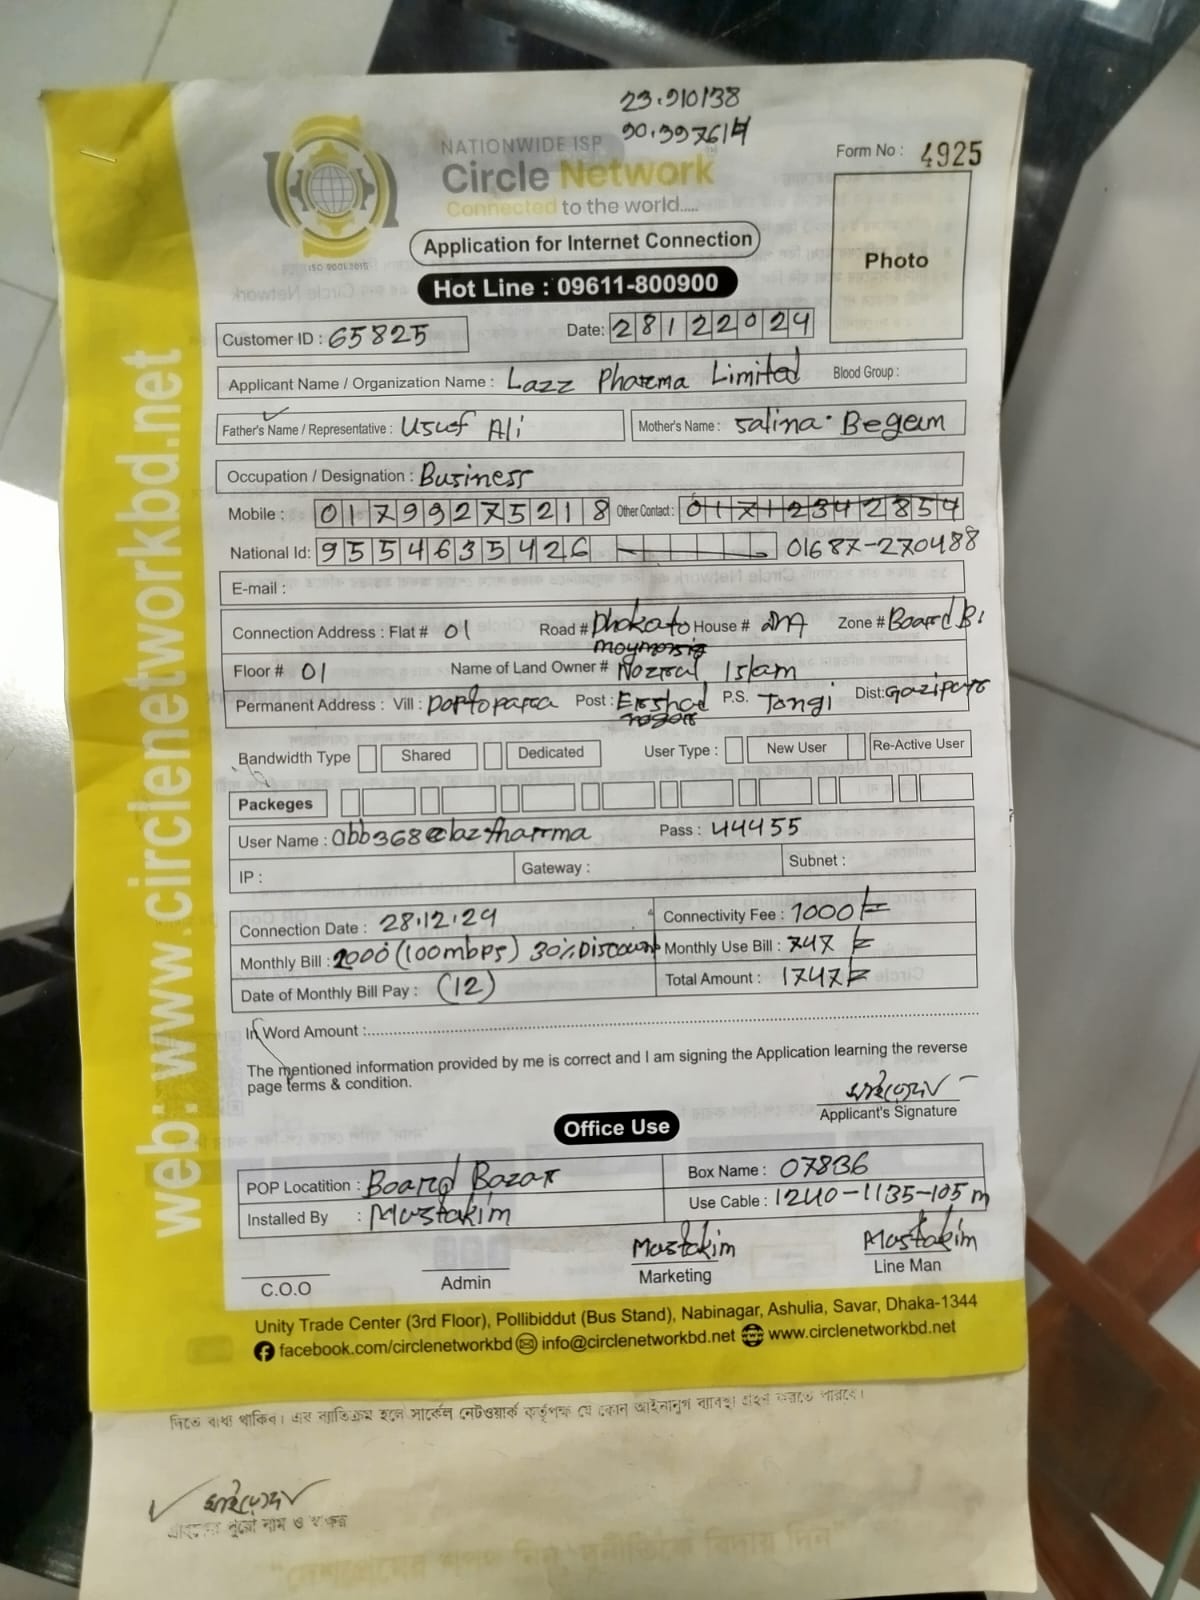 23.910138
90.397614
NATIONWIDE ISP
Circle Network
Connected to the world.....
Form No : 4925
ISO 9001:2015
Application for Internet Connection
Photo
Hot Line : 09611-800900
Customer ID : 65825 Date: 28122024
Applicant Name / Organization Name : Lazz Pharma Limited Blood Group :
Father's Name / Representative : Usuf Ali Mother's Name : Salina Begum
Occupation / Designation : Business
Mobile : 01799275218 Other Contact : 01712342854
National Id: 9554635426 01687-270488
E-mail :
Connection Address : Flat # 01 Road # Dhaka to moymonsig House # Zone # Board B:
Floor # 01 Name of Land Owner # Nozrul Islam
Permanent Address : Vill : Dortopara Post : Ershad nagor P.S. Tongi Dist: Gazipur
Bandwidth Type Shared Dedicated User Type : New User Re-Active User
Packeges
User Name : abb368@lazfharma Pass : 44455
IP : Gateway : Subnet :
Connection Date : 28.12.24 Connectivity Fee : 1000
Monthly Bill : 2000 (100mbps) 30% Discount Monthly Use Bill : 747
Date of Monthly Bill Pay : (12) Total Amount : 1747
In Word Amount :
The mentioned information provided by me is correct and I am signing the Application learning the reverse
page terms & condition.
Applicant's Signature
Office Use
POP Locatition : Board Bazar Box Name : 07836
Installed By : Mustakim Use Cable : 1240-1135-105m
C.O.O Admin Mustakim Marketing Mustakim Line Man
Unity Trade Center (3rd Floor), Pollibiddut (Bus Stand), Nabinagar, Ashulia, Savar, Dhaka-1344
facebook.com/circlenetworkbd info@circlenetworkbd.net www.circlenetworkbd.net
web: www.circlenetworkbd.net
দিতে বাধ্য থাকিব। এর ব্যতিক্রম হলে সার্কেল নেটওয়ার্ক কর্তৃপক্ষ যে কোন আইনানুগ ব্যবস্থা গ্রহণ করতে পারবে।
গ্রাহকের পুরো নাম ও স্বাক্ষর
"দেশপ্রেমের শপথ নিন, দুর্নীতিকে বিদায় দিন"